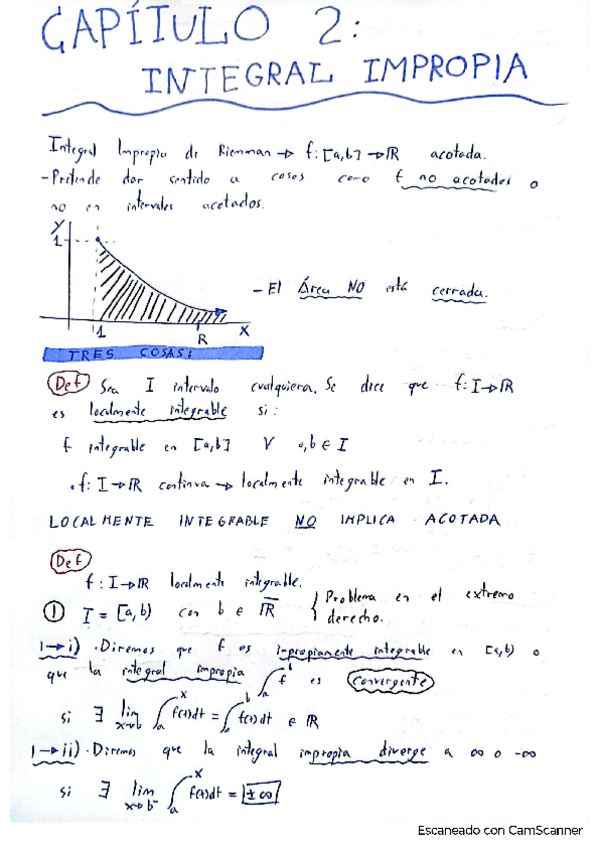 CAPÍTULO 2:
INTEGRAL IMPROPIA
Integral Impropia de Riemman → f: [a,b] → ℝ acotada.
- Pretende dar sentido a cosas como f no acotadas o
no en intervalos acotados.
Y
1
- El Área NO está cerrada.
1 R X
TRES COSAS:
Def Sea I intervalo cualquiera. Se dice que f: I → ℝ
es localmente integrable si:
f integrable en [a,b] ∀ a,b ∈ I
• f: I → ℝ continua → localmente integrable en I.
LOCALMENTE INTEGRABLE NO IMPLICA ACOTADA
Def
f: I → ℝ localmente integrable.
① I = [a,b) con b ∈ ℝ̅ { Problema en el extremo
derecho.
1→i) · Diremos que f es impropiamente integrable en [a,b) o
que la integral impropia ∫ₐᵇ f es convergente
si ∃ lim x→b⁻ ∫ₐˣ f(t)dt = ∫ₐᵇ f(t)dt ∈ ℝ
1→ii) · Diremos que la integral impropia diverge a ∞ o -∞
si ∃ lim x→b⁻ ∫ₐˣ f(t)dt = ±∞
Escaneado con CamScanner